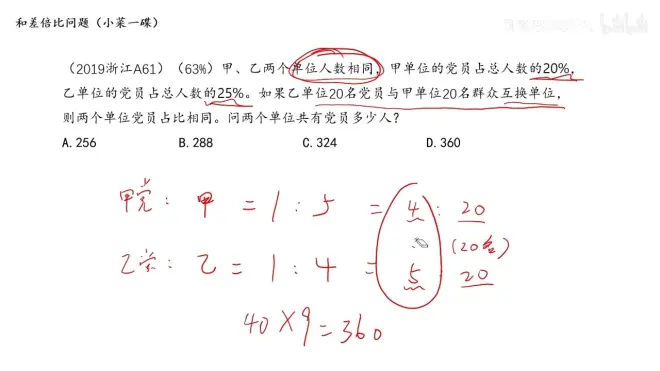 和差倍比问题（小菜一碟）
（2019浙江A61）（63%）甲、乙两个单位人数相同，甲单位的党员占总人数的20%，
乙单位的党员占总人数的25%。如果乙单位20名党员与甲单位20名群众互换单位，
则两个单位党员占比相同。问两个单位共有党员多少人？
A. 256 B. 288 C. 324 D. 360
甲党： 甲 = 1 : 5 = 4 : 20
(20名)
乙党： 乙 = 1 : 4 = 5 20
40×9=360